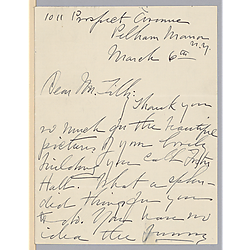 1011 Prospect Avenue
Pelham Manor
N.Y.
March 6th
Dear Mr.
Thank you
so much for the beautiful
pictures of your lovely
building you call
Hall. What a splen-
did thing for you
to do. You have no
idea the